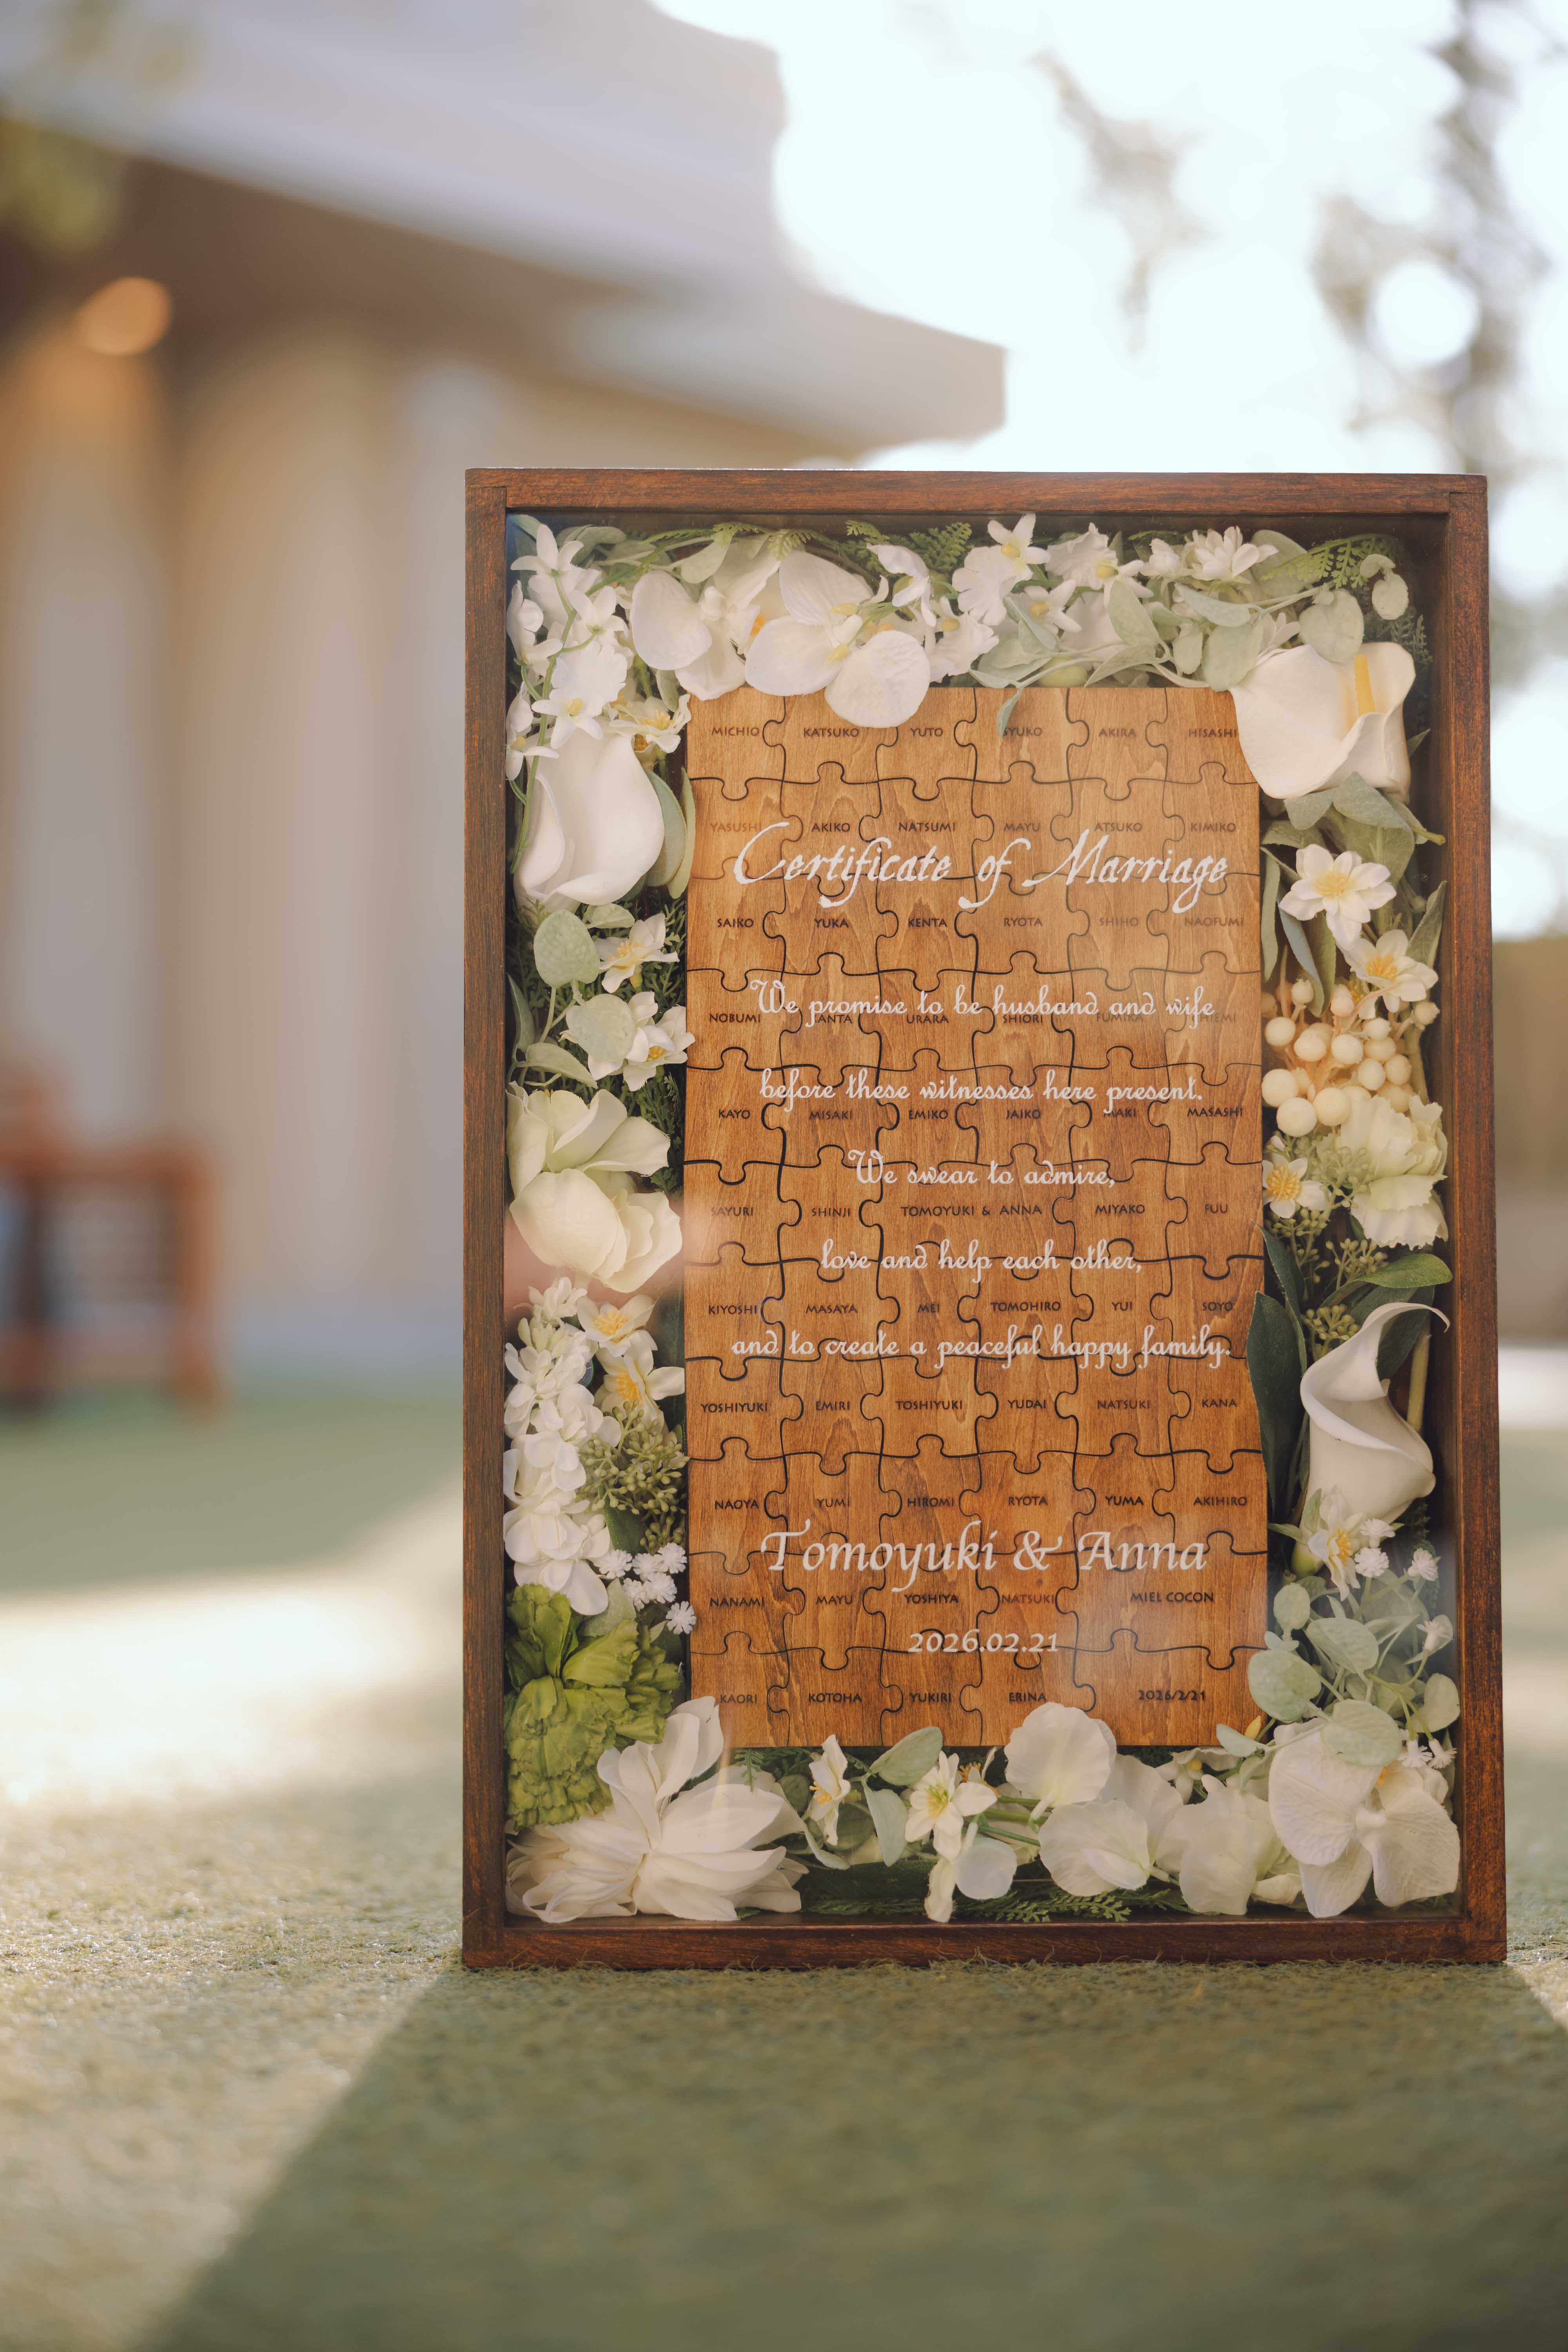 MICHIO KATSUKO YUTO SYUKO AKIRA HISASHI
YASUSHI AKIKO NATSUMI MAYU ATSUKO KIMIKO
Certificate of Marriage
SAIKO YUKA KENTA RYOTA SHIHO NAOFUMI
We promise to be husband and wife
NOBUMI URARA SHIORI FUMIKA
before these witnesses here present.
KAYO MISAKI EMIKO JAIKO MAKI MASASHI
We swear to admire,
SAYURI SHINJI TOMOYUKI & ANNA MIYAKO FUU
love and help each other,
KIYOSHI MASAYA MEI TOMOHIRO YUI SOYO
and to create a peaceful happy family.
YOSHIYUKI EMIRI TOSHIYUKI YUDAI NATSUKI KANA
NAOYA YUMI HIROMI RYOTA YUMA AKIHIRO
Tomoyuki & Anna
NANAMI MAYU YOSHIYA NATSUKI MIEL COCON
2026.02.21
KAORI KOTOHA YUKIRI ERINA 2026/2/21